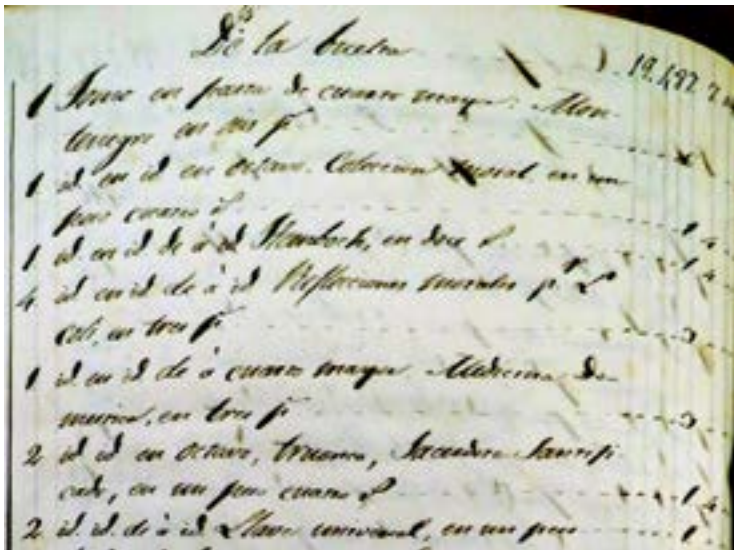 De la buelta 19.487 2
1 Tomo en pasta de cuarto mayor. Mon-
tenegro en dos p.
1 id. en id. en octavo. Coleccion moral en un
peso cuatro r. 1 4
1 id. en id. de à id. en doce r. 1 4
4 id. en id. de à id. Reflecciones morales p.r
en tres p. 3
1 id. en id. de à cuarto mayor. Medicina Do-
mestica, en tres p. 3
2 id. id. en octavo, Sacerdote Santifi-
cado, en un peso cuatro r. 1 4
2 id. id. de à id. Llave universal, en un peso 1